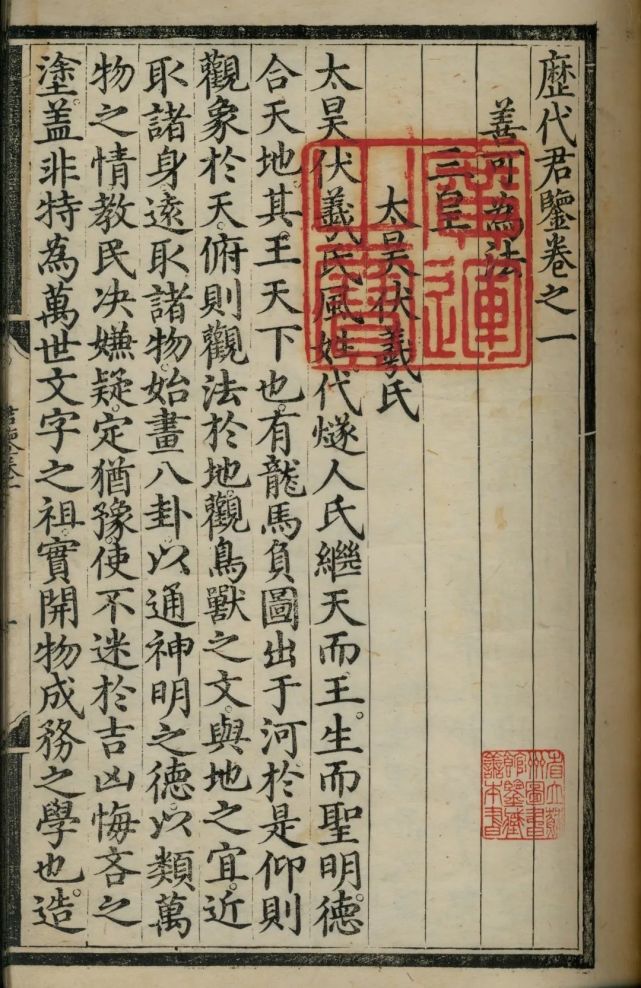 歷代君鑒卷之一
善可為法
三皇
太昊伏羲氏
太昊伏羲氏風姓代燧人氏繼天而王。生而聖明。德
合天地。其王天下也。有龍馬負圖出于河。於是仰則
觀象於天。俯則觀法於地。觀鳥獸之文。與地之宜。近
取諸身。遠取諸物。始畫八卦。以通神明之德。以類萬
物之情。教民決嫌疑。定猶豫。使不迷於吉凶悔吝之
塗。盖非特為萬世文字之祖。實開物成務之學也。造
廣運之寶